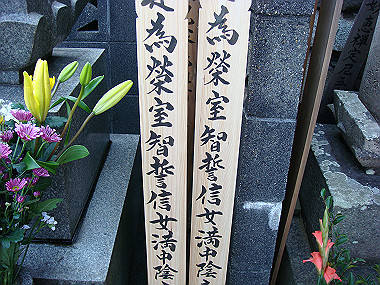 為榮室智誓信女満中陰
為榮室智誓信女満中陰